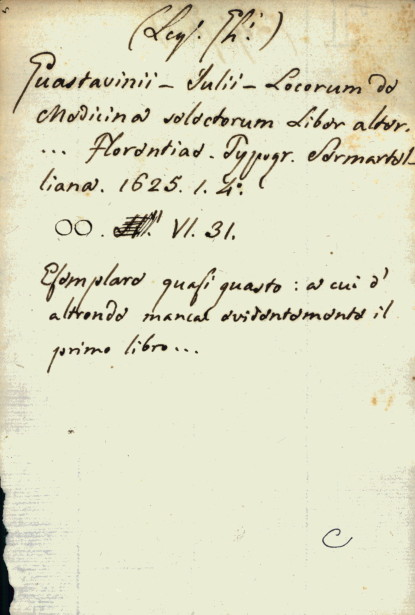 (Leg. Gh.i)
Guastavinii - Iulii - Locorum de
Medicina selectorum Liber alter.
... Florentiae. Typogr. Sermartel-
liana. 1625. 1. 4.o
OO. VI. 31.
Esemplare quasi guasto: a cui d'
altronde manca evidentemente il
primo libro...
C